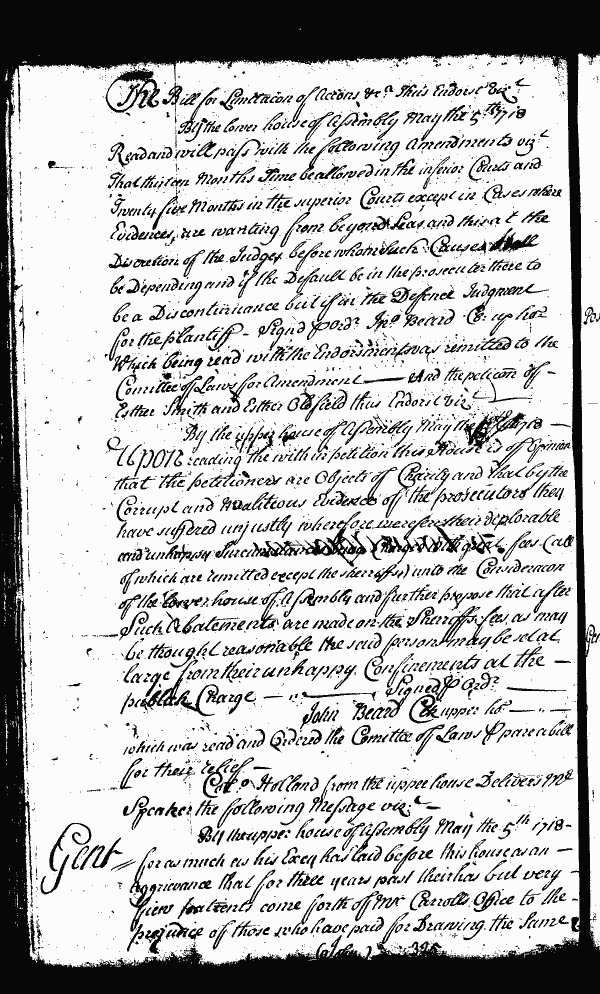 The Bill for Limitacon of Actons &ca. thus Endorst vizt.
By the lower house of Assembly May the 5th 1718
Read and will pass with the following Amendments vizt.
That thirteen Months Time be allowed in the inferior Courts and
Twenty five Months in the superior Courts except in Cases where
Evidences are wanting from beyond Seas and this at the
Discretion of the Judges before whom such Causes shall
be Depending and if the Default be in the prosecutor there to
be a Discontinuance but if in the Defence Judgment
for the plantiff - Signd p ordr. Jno. Beard Cl: up hos
Which being read with the Endorsments was remitted to the
Comittee of Laws for Amendment — And the peticon off -
Esther Smith and Esther Oldfield thus Endorst vizt
By the upper house of Assembly May the 1718 —
Upon reading the within petition this House is of Opinion
that the petitioners are Objects of Charity and that by the
Corrupt and Maliteous Evidence of the prosecutors they
have suffered unjustly wherefore were fer their deplorable
and unhappy fees (all
of which are remitted except the sherriffs) unto the Consideracon
of the lower house of Assembly and further propose that after
Such Abatements are made on the Sherriffs fees as may
be thought reasonable the said persons may be set at
large from their unhappy Confinements at the —
publick Charge — Signed p Ordr.
John Beard Clk upper hos. —
which was read and Ordered the Comittee of Laws prepare a bill
for their relief —
Colo. Holland from the upper house Delivers Mr.
Speaker the following Message vizt. —
By the upper house of Assembly May the 5th 1718 -
Gent=
for as much as his Exey has laid before this house as an —
aggrievance that for three years past their has but very -
few pattents come forth off Mr Carrolls Office to the -
prejudice of those who have paid for Drawing the Same